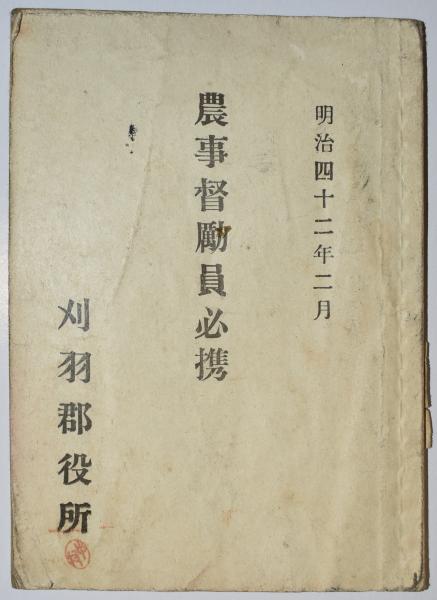 明治四十二年二月
農事督励員必携
刈羽郡役所